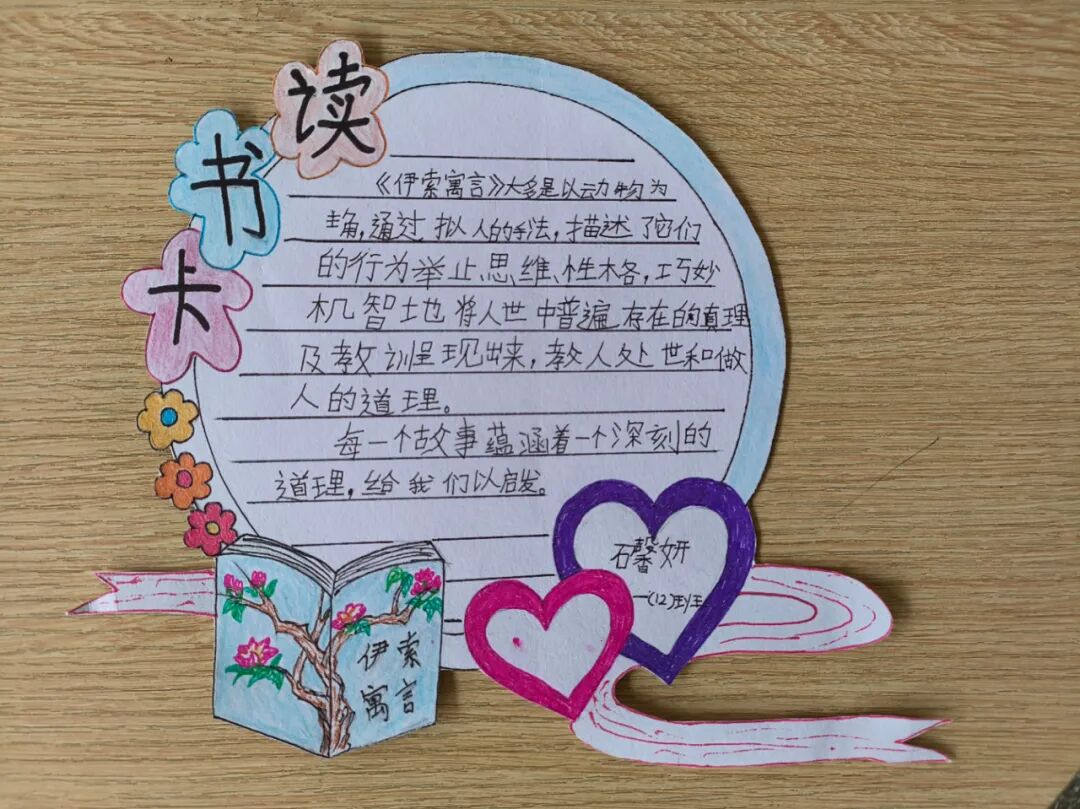 读书卡
《伊索寓言》大多是以动物为
主角,通过拟人的手法,描述了它们
的行为举止、思维、性格,巧妙
机智地将人世中普遍存在的真理
及教训呈现出来,教人处世和做
人的道理。
每一个故事蕴涵着一个深刻的
道理,给我们以启发。
石馨妍
一(12)班
伊索
寓言